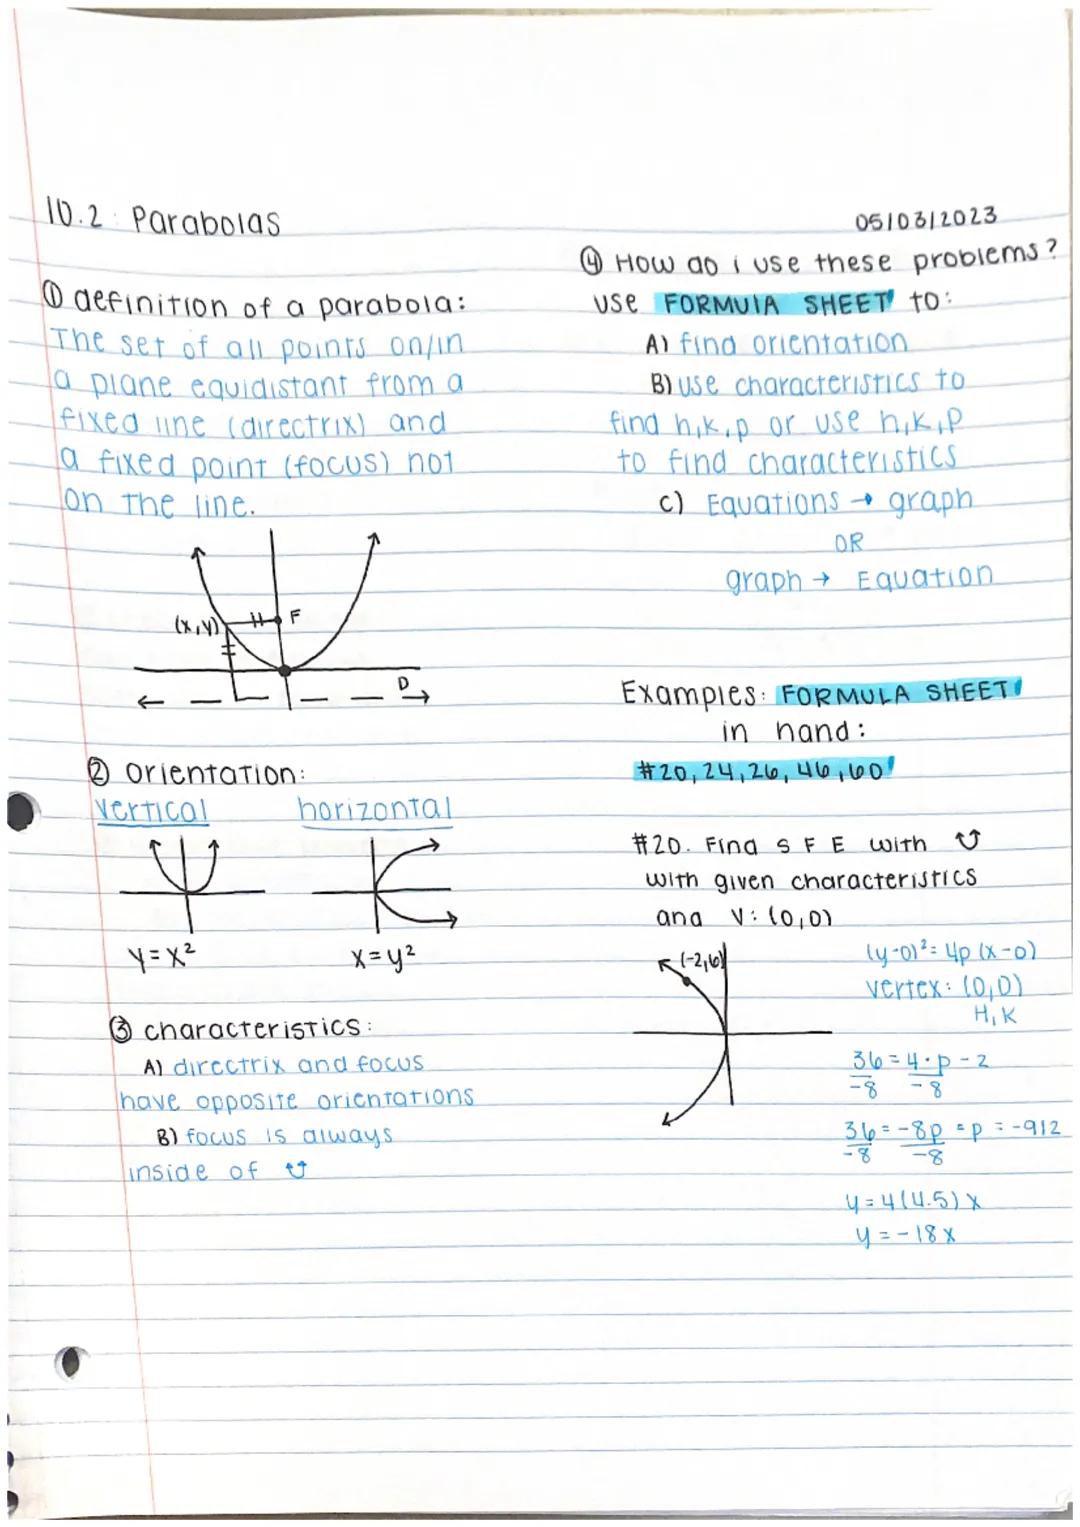 10.2: Parabolas
① definition of a parabola:
The set of all points on/in
a plane equidistant from a
fixed line (directrix) and
a fixed point (focus) not
on the line.
(x,y)
F
D
② orientation:
vertical horizontal
y=x² x=y²
③ characteristics:
A) directrix and focus
have opposite orientations
B) focus is always
inside of
05/03/2023
④ How do i use these problems?
use FORMULA SHEET to:
A) find orientation
B) use characteristics to
find h,k,p or use h,k,p
to find characteristics
C) Equations → graph
OR
graph → Equation
Examples: FORMULA SHEET
in hand:
#20,24,26,46,60
#20. Find S F E with
with given characteristics
and V: (0,0)
(-2,6)
(y-0)²=4p(x-0)
vertex: (0,0)
H,K
36=4·p-2
-8 -8
36=-8p=p=-912
-8 -8
y=4(4.5)x
y=-18x